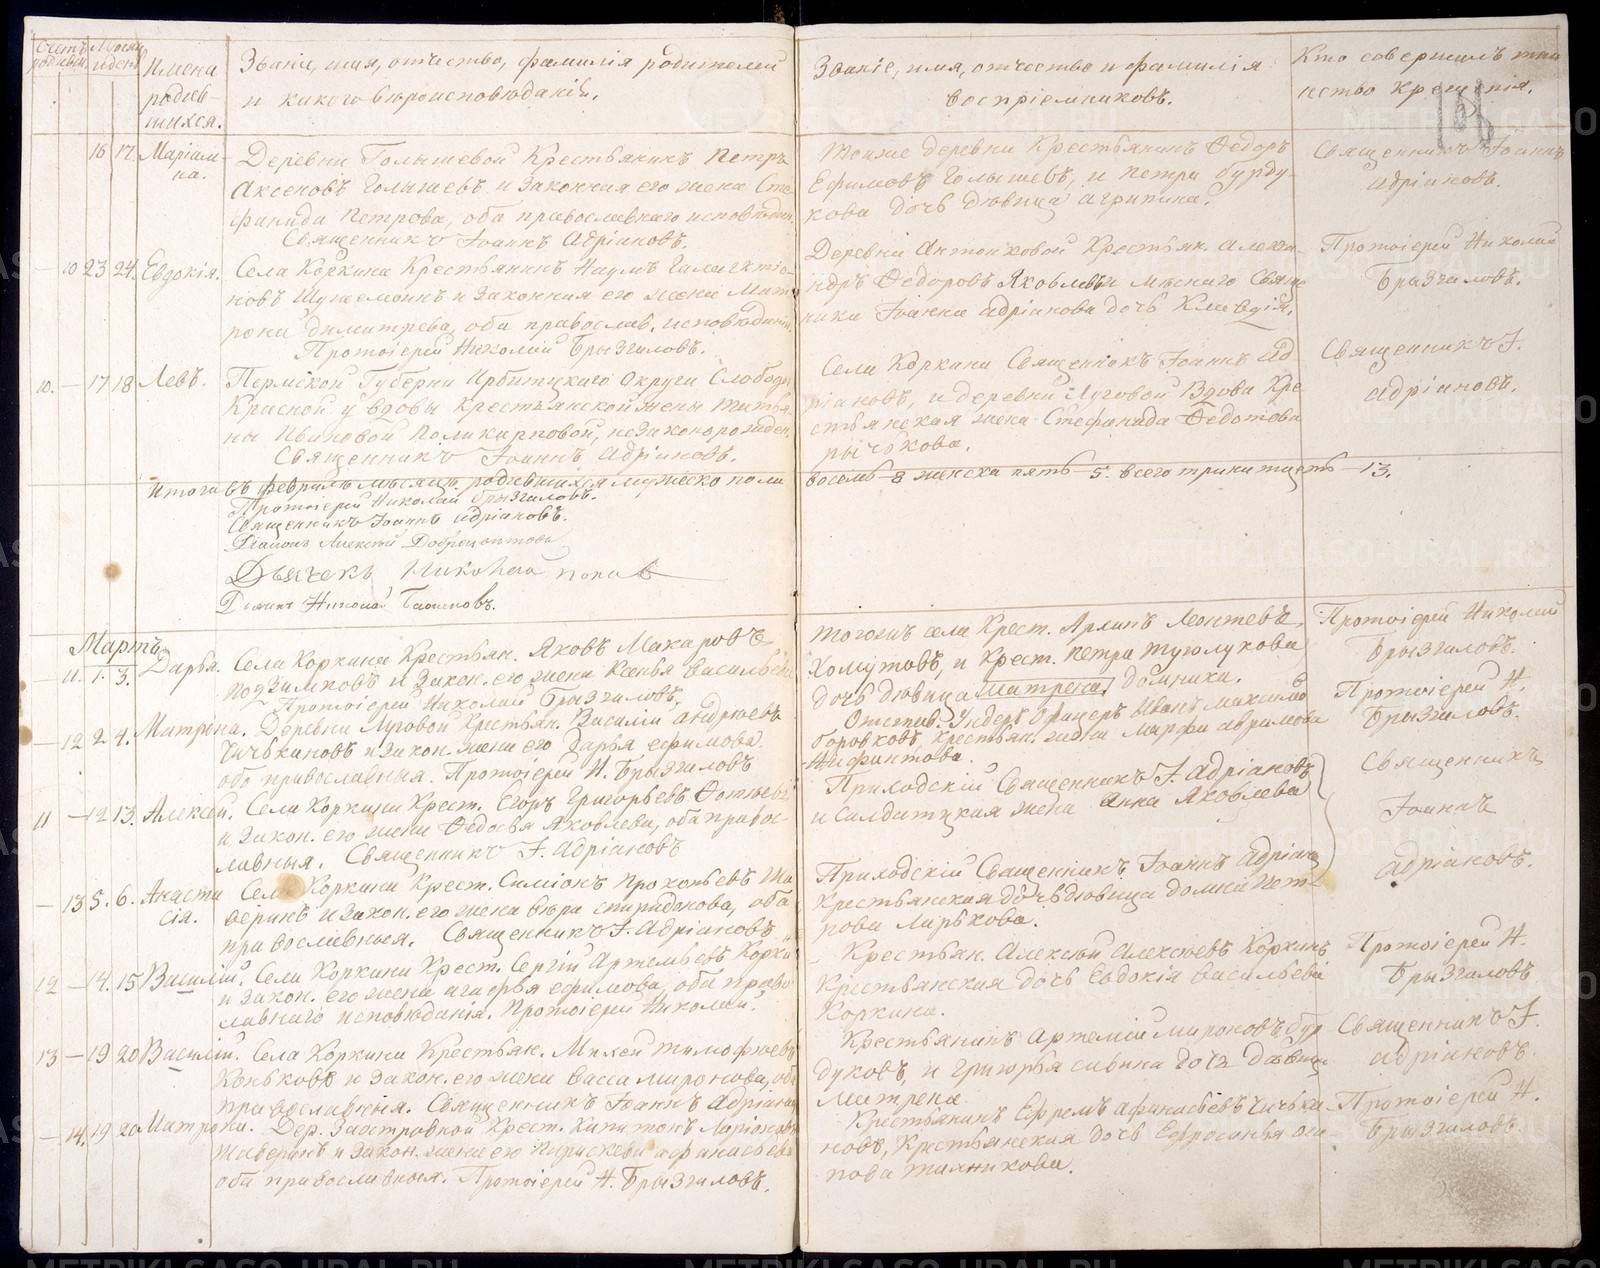 Счетъ родивш.
Мѣсяц и день
Имена
родив-
шихся.
Званіе, имя, отчество, фамилія родителей
и какого вѣроисповѣданія.
Званіе, имя, отчество и фамилія
воспріемниковъ.
Кто совершилъ таи
нство крещенія.
16 17 Маріам-
на.
Деревни Голышевой Крестьянинъ Петръ
Аксеновъ Голышевъ и Законная его жена Сте
фанида Петрова, оба православнаго исповѣдан.
Священникъ Іоаннъ Адріановъ.
Тойже деревни Крестьянинъ Федоръ
Ефимовъ Голышевъ, и Петра Бурду-
кова дочь дѣвица Агрипина.
Священникъ Іоаннъ
Адріановъ.
— 10 23 24. Евдокія.
Села Коркина Крестьянинъ Наумъ Галактіо-
новъ и Законная его жена Мат
рона Димитрева, оба православ. исповѣданія
Протоіерей Николай Брызгаловъ.
Деревни Антоновой Крестьян. Алекса-
ндръ Федоровъ Яковлевъ и мѣстнаго Свяще
ника Іоанна Адріанова дочь Клавдія.
Протоіерей Николай
Брызгаловъ.
10. — 17 18 Левъ.
Пермской Губерни Ирбитскаго Округа Слободы
Красной у вдовы крестьянской жены Татья
ны Ивановой Поликарповой, незаконорожден.
Священникъ Іоаннъ Адріановъ.
Села Коркина Священникъ Іоаннъ Ад
ріановъ, и деревни Луговой Вдова Кре
стьянская жена Стефанида Федотова
Рычкова.
Священникъ І.
Адріановъ.
Итого въ февралѣ мѣсяцѣ родившихся мужеска пола
восемь — 8 женска пять — 5. всего тринатцеть — 13.
Протоіерей Николай Брызгаловъ.
Священникъ Іоаннъ Адріановъ.
Діаконъ Алексей
Дьячекъ Николай Попов
Николай
Мартъ
— 11. 1. 3. Дарья.
Села Коркина Крестьян. Яковъ Макаровъ
и Закон. его жена Ксенья Васильева
Протоіерей Николай Брызгаловъ.
Тогожъ села Крест. Леонтевъ
Хомутовъ, и Крест. Петра Туголукова
дочь дѣвица Матрена Домника.
Протоіерей Николай
Брызгаловъ.
— 12 2 4. Матрона.
Деревни Луговой Крестьян. Василій Андреевъ
Чичькановъ и Закон. жена его Дарья Ефимова.
оба православныя. Протоіерей Н. Брызгаловъ
Отстав. Ундеръ Офицеръ Иванъ Максимо
Боровковъ, Крестьян. жена Марфа Аврамова
Протоіерей Н.
Брызгаловъ.
11 — 12 13. Алексей.
Села Коркина Крест. Егоръ Григорьевъ
и Закон. его жена Федосья Яковлева, оба правос-
лавныя. Священникъ І. Адріановъ
Приходскій Священникъ І. Адріановъ
и Солдатцкая жена Анна Яковлева
Священникъ
Іоаннъ
Адріановъ.
— 13 5. 6. Анаста
сія.
Села Коркина Крест. Симіонъ Прокопьевъ Та
и Закон. его жена Вѣра Спиридонова, оба
православныя. Священникъ І. Адріановъ
Приходскій Священникъ Іоаннъ Адріано
Крестьянская дочь дѣвица Домна Пет-
рова Ларькова.
12 — 14. 15 Василій.
Села Коркина Крест. Сергій Артемьевъ Корки
и Закон. его жена Агафья Ефимова, оба право
славнаго исповѣданія. Протоіерей Николай.
Крестьян. Алексѣй Алексѣевъ Коркинъ
Крестьянская дочь Евдокія Васильева
Коркина.
Протоіерей Н.
Брызгаловъ
13 — 19 20 Василій.
Села Коркина Крестьян. Тимофѣевъ
Коньковъ и Закон. его жена Васса Миронова, оба
православныя. Священникъ Іоаннъ Адріановъ
Крестьянинъ Артемій Мироновъ Бур
дуковъ, и Григорья Савина дочь дѣвица
Матрена
Священникъ І.
Адріановъ.
— 14. 19 20 Матрона.
Дер. Заостровной Крест. Капитонъ Ларіоновъ
и Закон. жена его Параскева Афанасьева
оба православныя. Протоіерей Н. Брызгаловъ.
Крестьянинъ Ефремъ Афанасьевъ Чичька-
новъ, Крестьянская дочь Ефросинья
Протоіерей Н.
Брызгаловъ.
METRIKI.GASO-URAL.RU